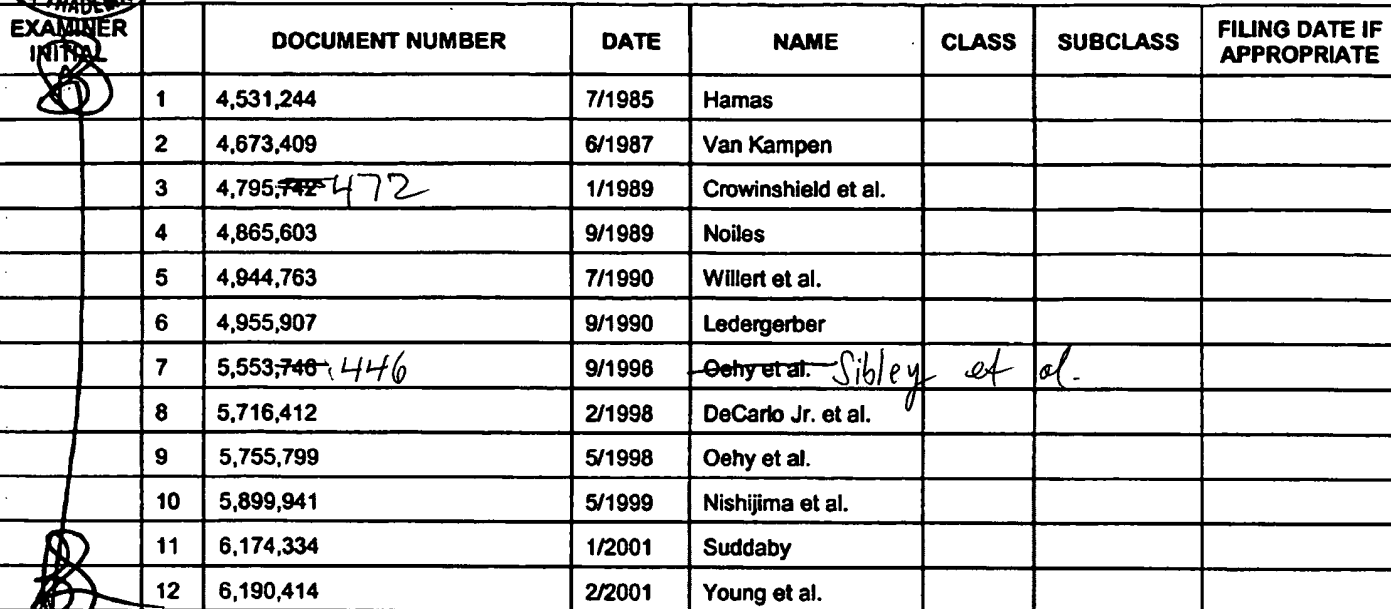 TRADEM
EXAMINER INITIAL DOCUMENT NUMBER DATE NAME CLASS SUBCLASS FILING DATE IF APPROPRIATE
1 4,531,244 7/1985 Hamas
2 4,673,409 6/1987 Van Kampen
3 4,795,742 472 1/1989 Crowinshield et al.
4 4,865,603 9/1989 Noiles
5 4,944,763 7/1990 Willert et al.
6 4,955,907 9/1990 Ledergerber
7 5,553,746 446 9/1996 Oehy et al. Sibley et al.
8 5,716,412 2/1998 DeCarlo Jr. et al.
9 5,755,799 5/1998 Oehy et al.
10 5,899,941 5/1999 Nishijima et al.
11 6,174,334 1/2001 Suddaby
12 6,190,414 2/2001 Young et al.